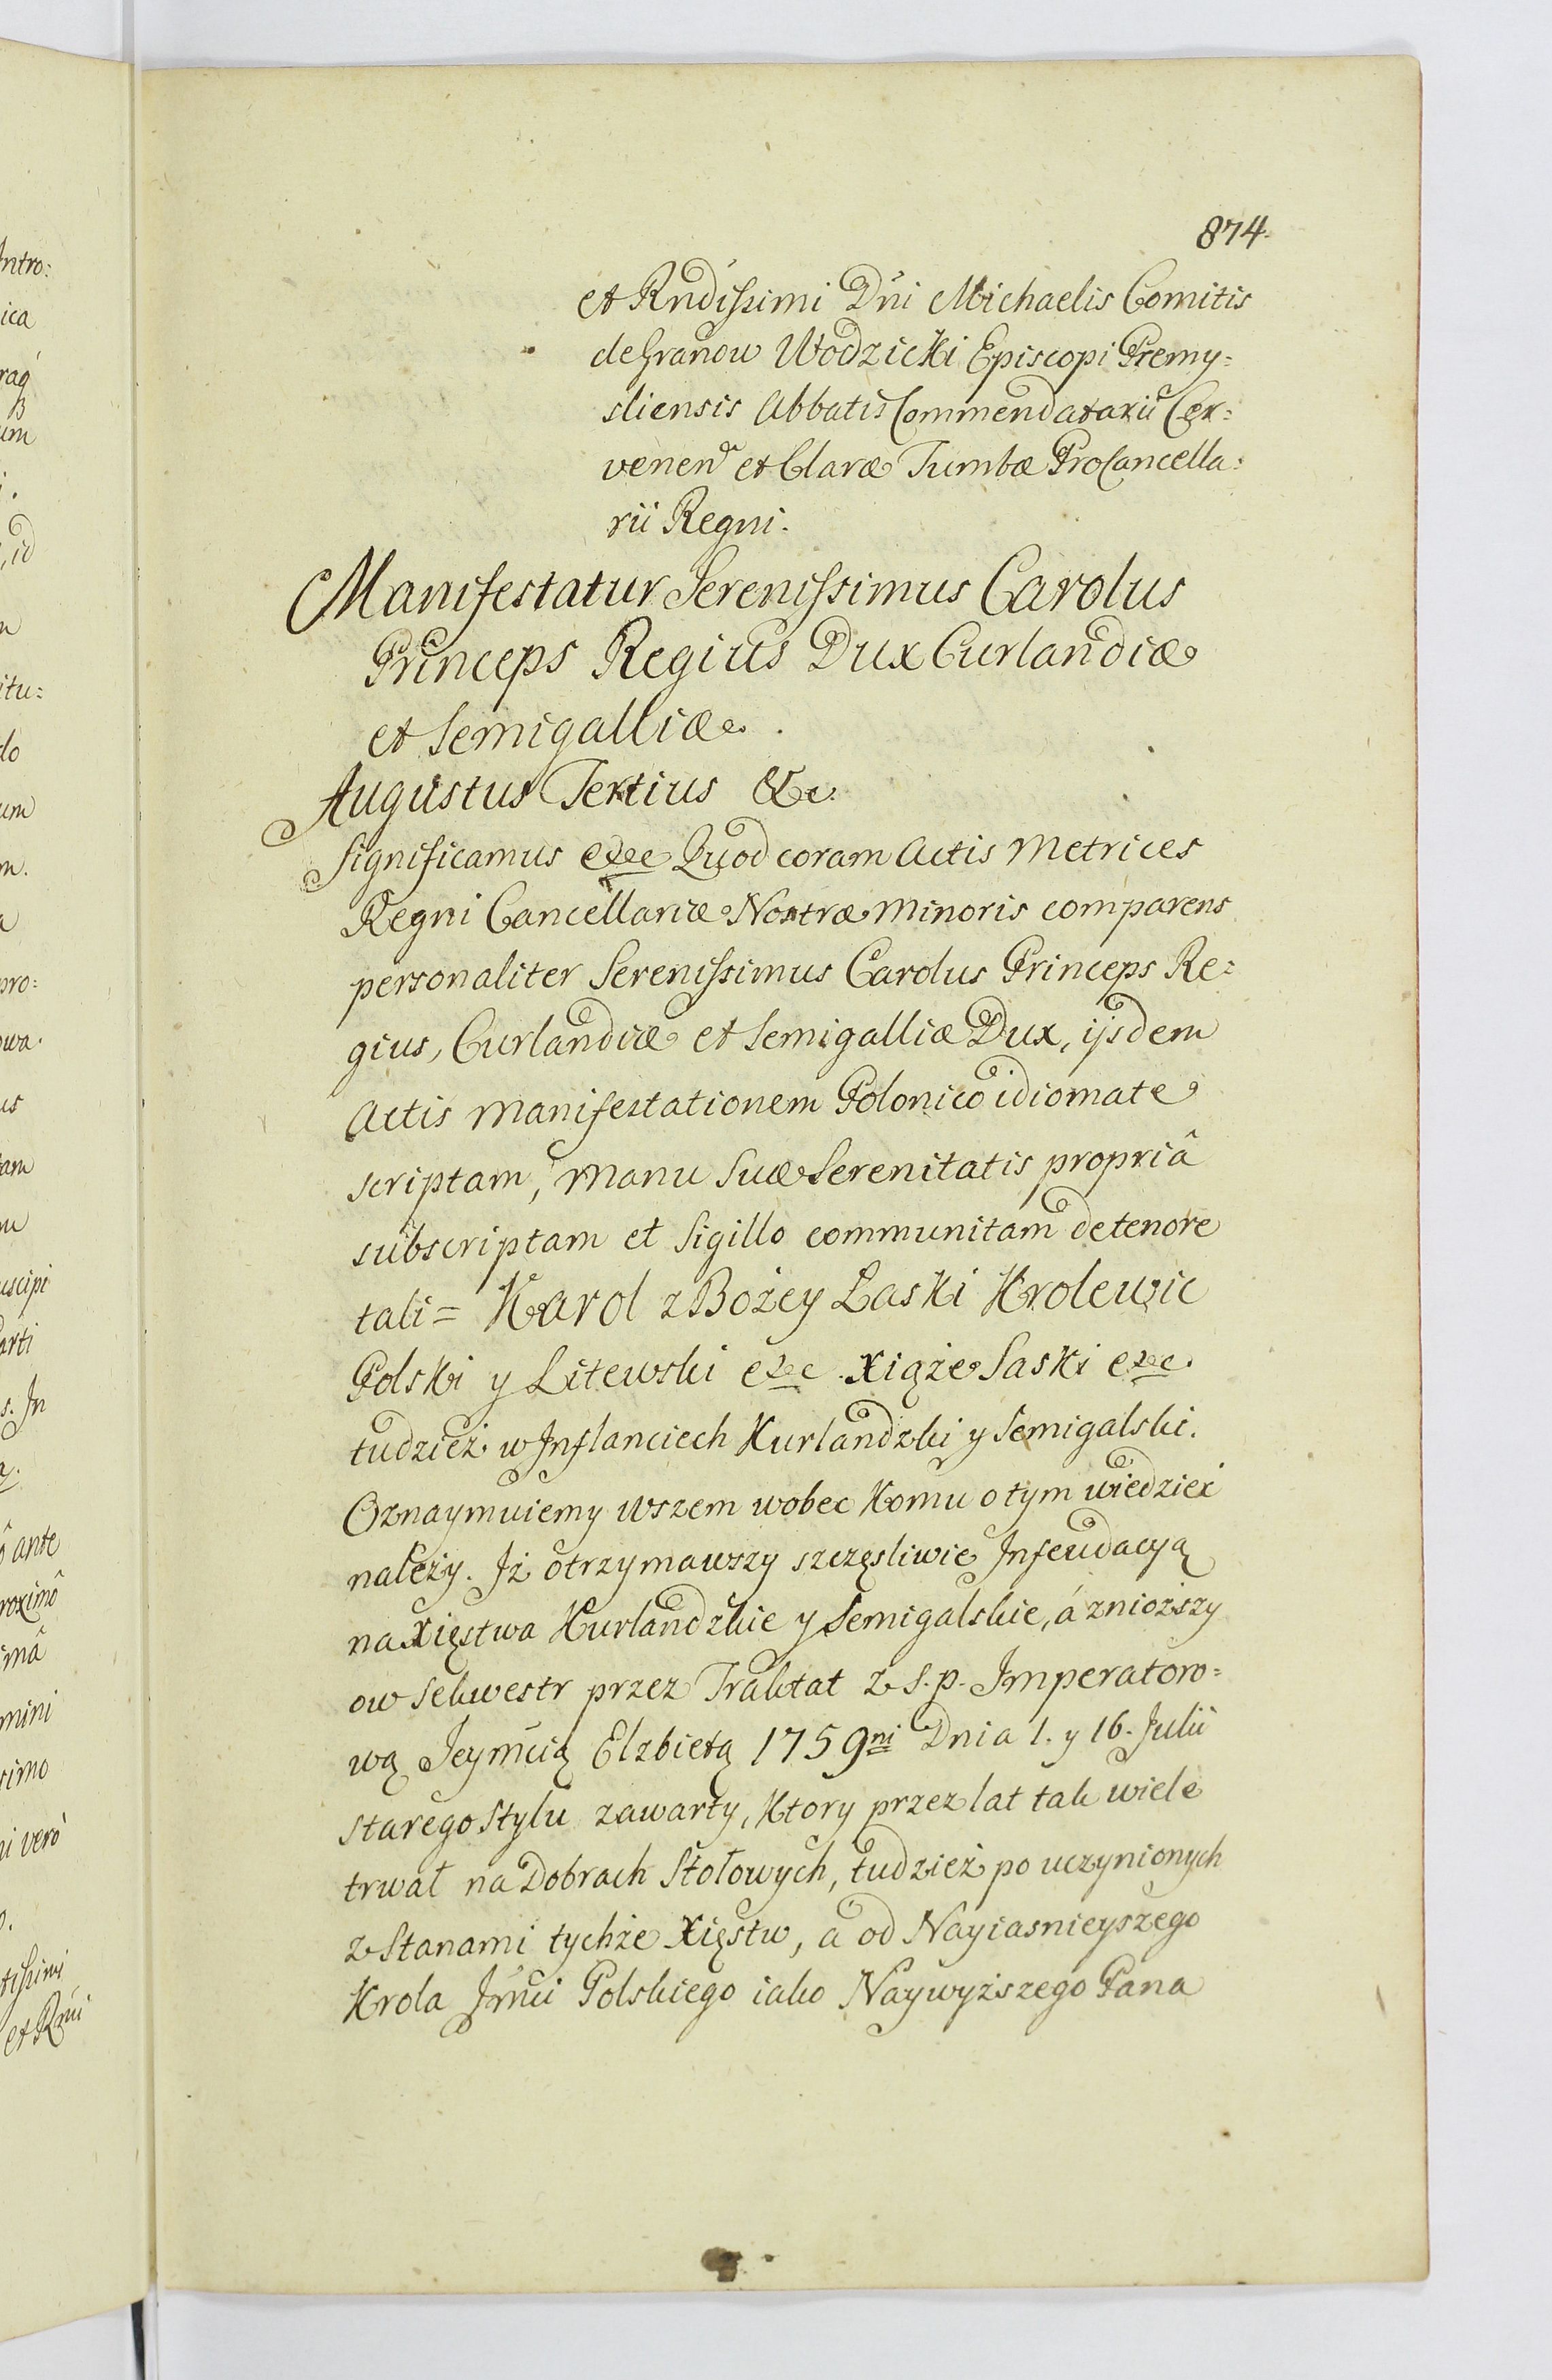 874.
et Rndissimi Dni Michaelis Comitis
de Granow Wodzicki Episcopi Premy=
sliensis Abbatis Commendatarii Cer=
venen et Claræ Tumbæ ProCancella=
rii Regni.
Manifestatur Serenissimus Carolus
Princeps Regius Dux Curlandiæ
et Semigalliæ.
Augustus Tertius &c.
Significamus etc Quod coram Actis Metrices
Regni Cancellariæ Nostræ Minoris comparens
personaliter Serenissimus Carolus Princeps Re=
gius, Curlandiæ et Semigalliæ Dux, ijsdem
Actis Manifestationem Polonico idiomate
scriptam, Manu Suæ Serenitatis propriâ
subscriptam et Sigillo communitam de tenore
tali = Karol z Bożey Łaski Krolewic
Polski y Litewski etc. Xiąże Saski etc.
tudzież w Inflanciech Kurlandzki y Semigalski.
Oznaymuiemy wszem wobec komu o tym wiedzieć
należy. Iż otrzymawszy szczęsliwie Infeudacyą
na Xięstwa Kurlandzkie y Semigalskie, á zniozszy
ow Sekwestr przez Traktat z S. p. Imperatoro=
wą Jeymcią Elzbietą 1759ni Dnia 1. y 16. Julii
starego Stylu zawarty, ktory przez lat tak wiele
trwał na Dobrach Stołowych, tudzież po uczynionych
z Stanami tychże Xięstw, a od Nayiasnieyszego
Krola Jmci Polskiego iako Naywyższego Pana
Intro:
ica
um
id
itu:
do
um
m.
a
pro:
owa.
us
tam
uscipi
arti
s. In
ante
roximô
imâ
mini
simo
ni verò
tissimi
et Rmi